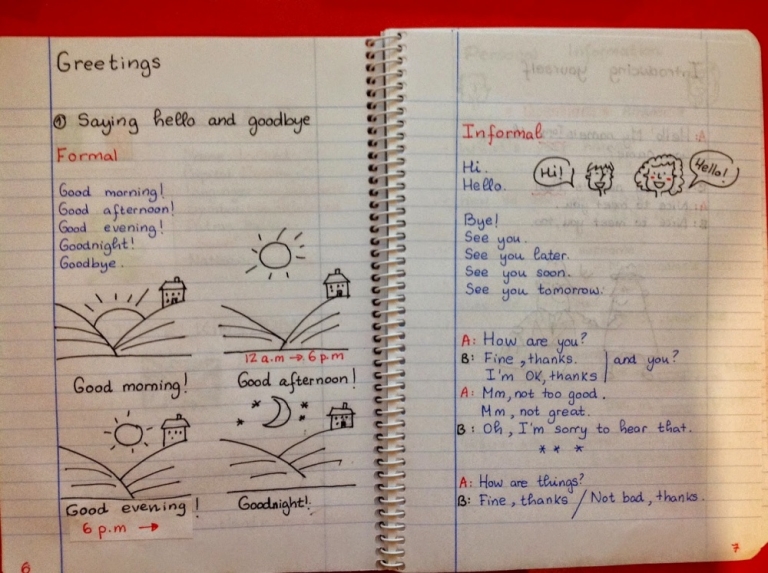 Greetings
① Saying hello and goodbye
Formal
Good morning!
Good afternoon!
Good evening!
Goodnight!
Goodbye.
12 a.m → 6 p.m
Good morning!
Good afternoon!
Good evening!
6 p.m →
Goodnight!
6
Informal
Hi.
Hello.
Hi!
Hello!
Bye!
See you.
See you later.
See you soon.
See you tomorrow.
A: How are you?
B: Fine, thanks. | and you?
I'm OK, thanks
A: Mm, not too good.
Mm, not great.
B: Oh, I'm sorry to hear that.
* * *
A: How are things?
B: Fine, thanks / Not bad, thanks.
7